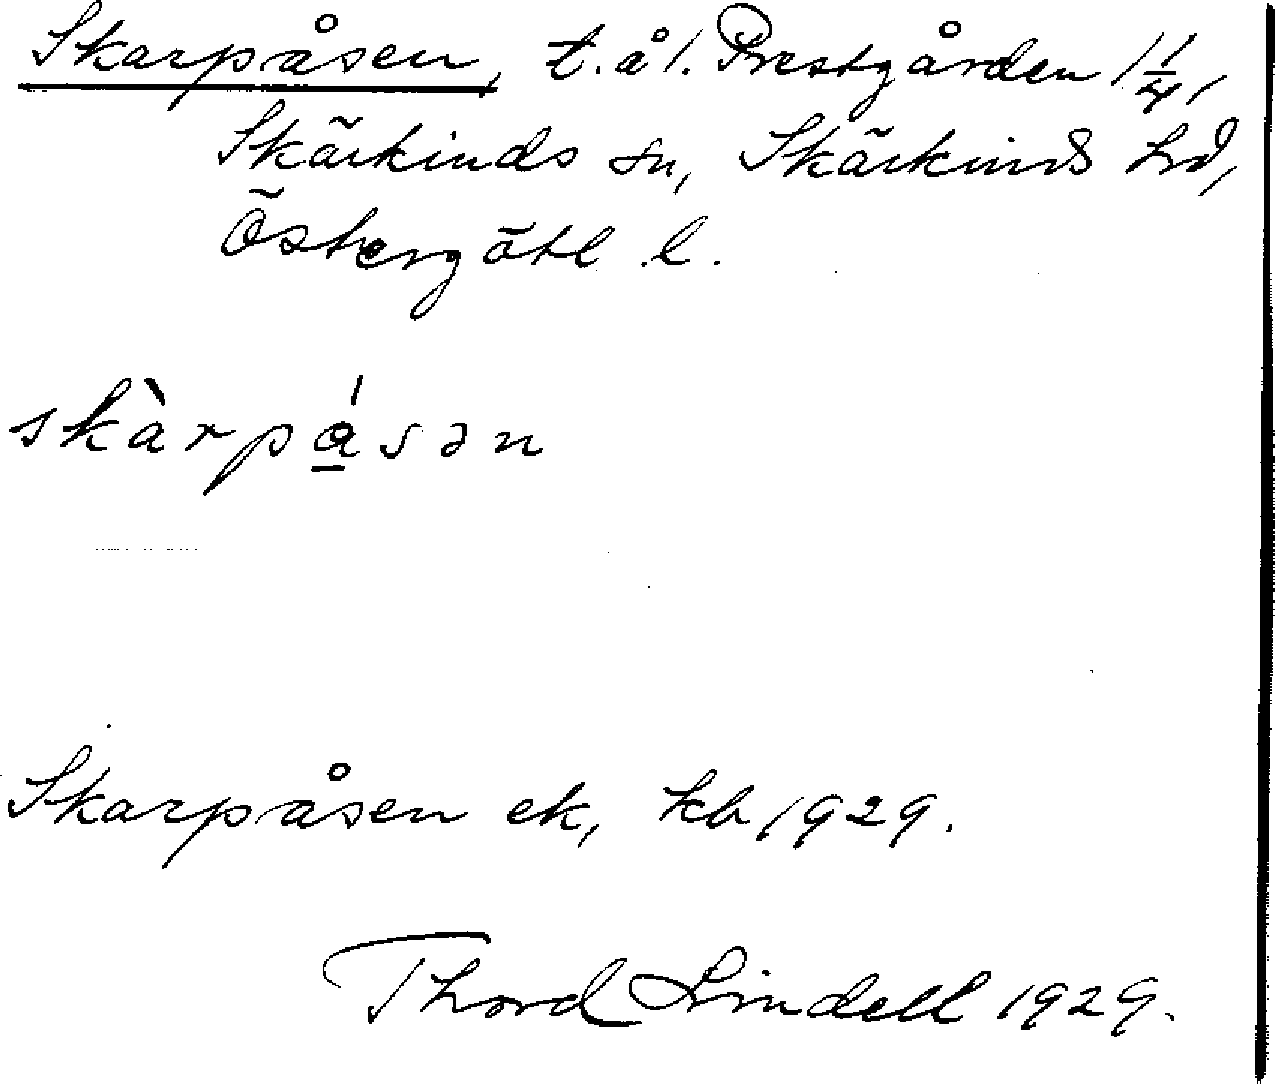 Skarpåsen, t. å l. Prestgården 1 1/4,
Skärkinds sn, Skärkinds hd,
Östergötl. l.
skàrpá̲sən
Skarpåsen ek, kb 1929.
Thord Lindell 1929.